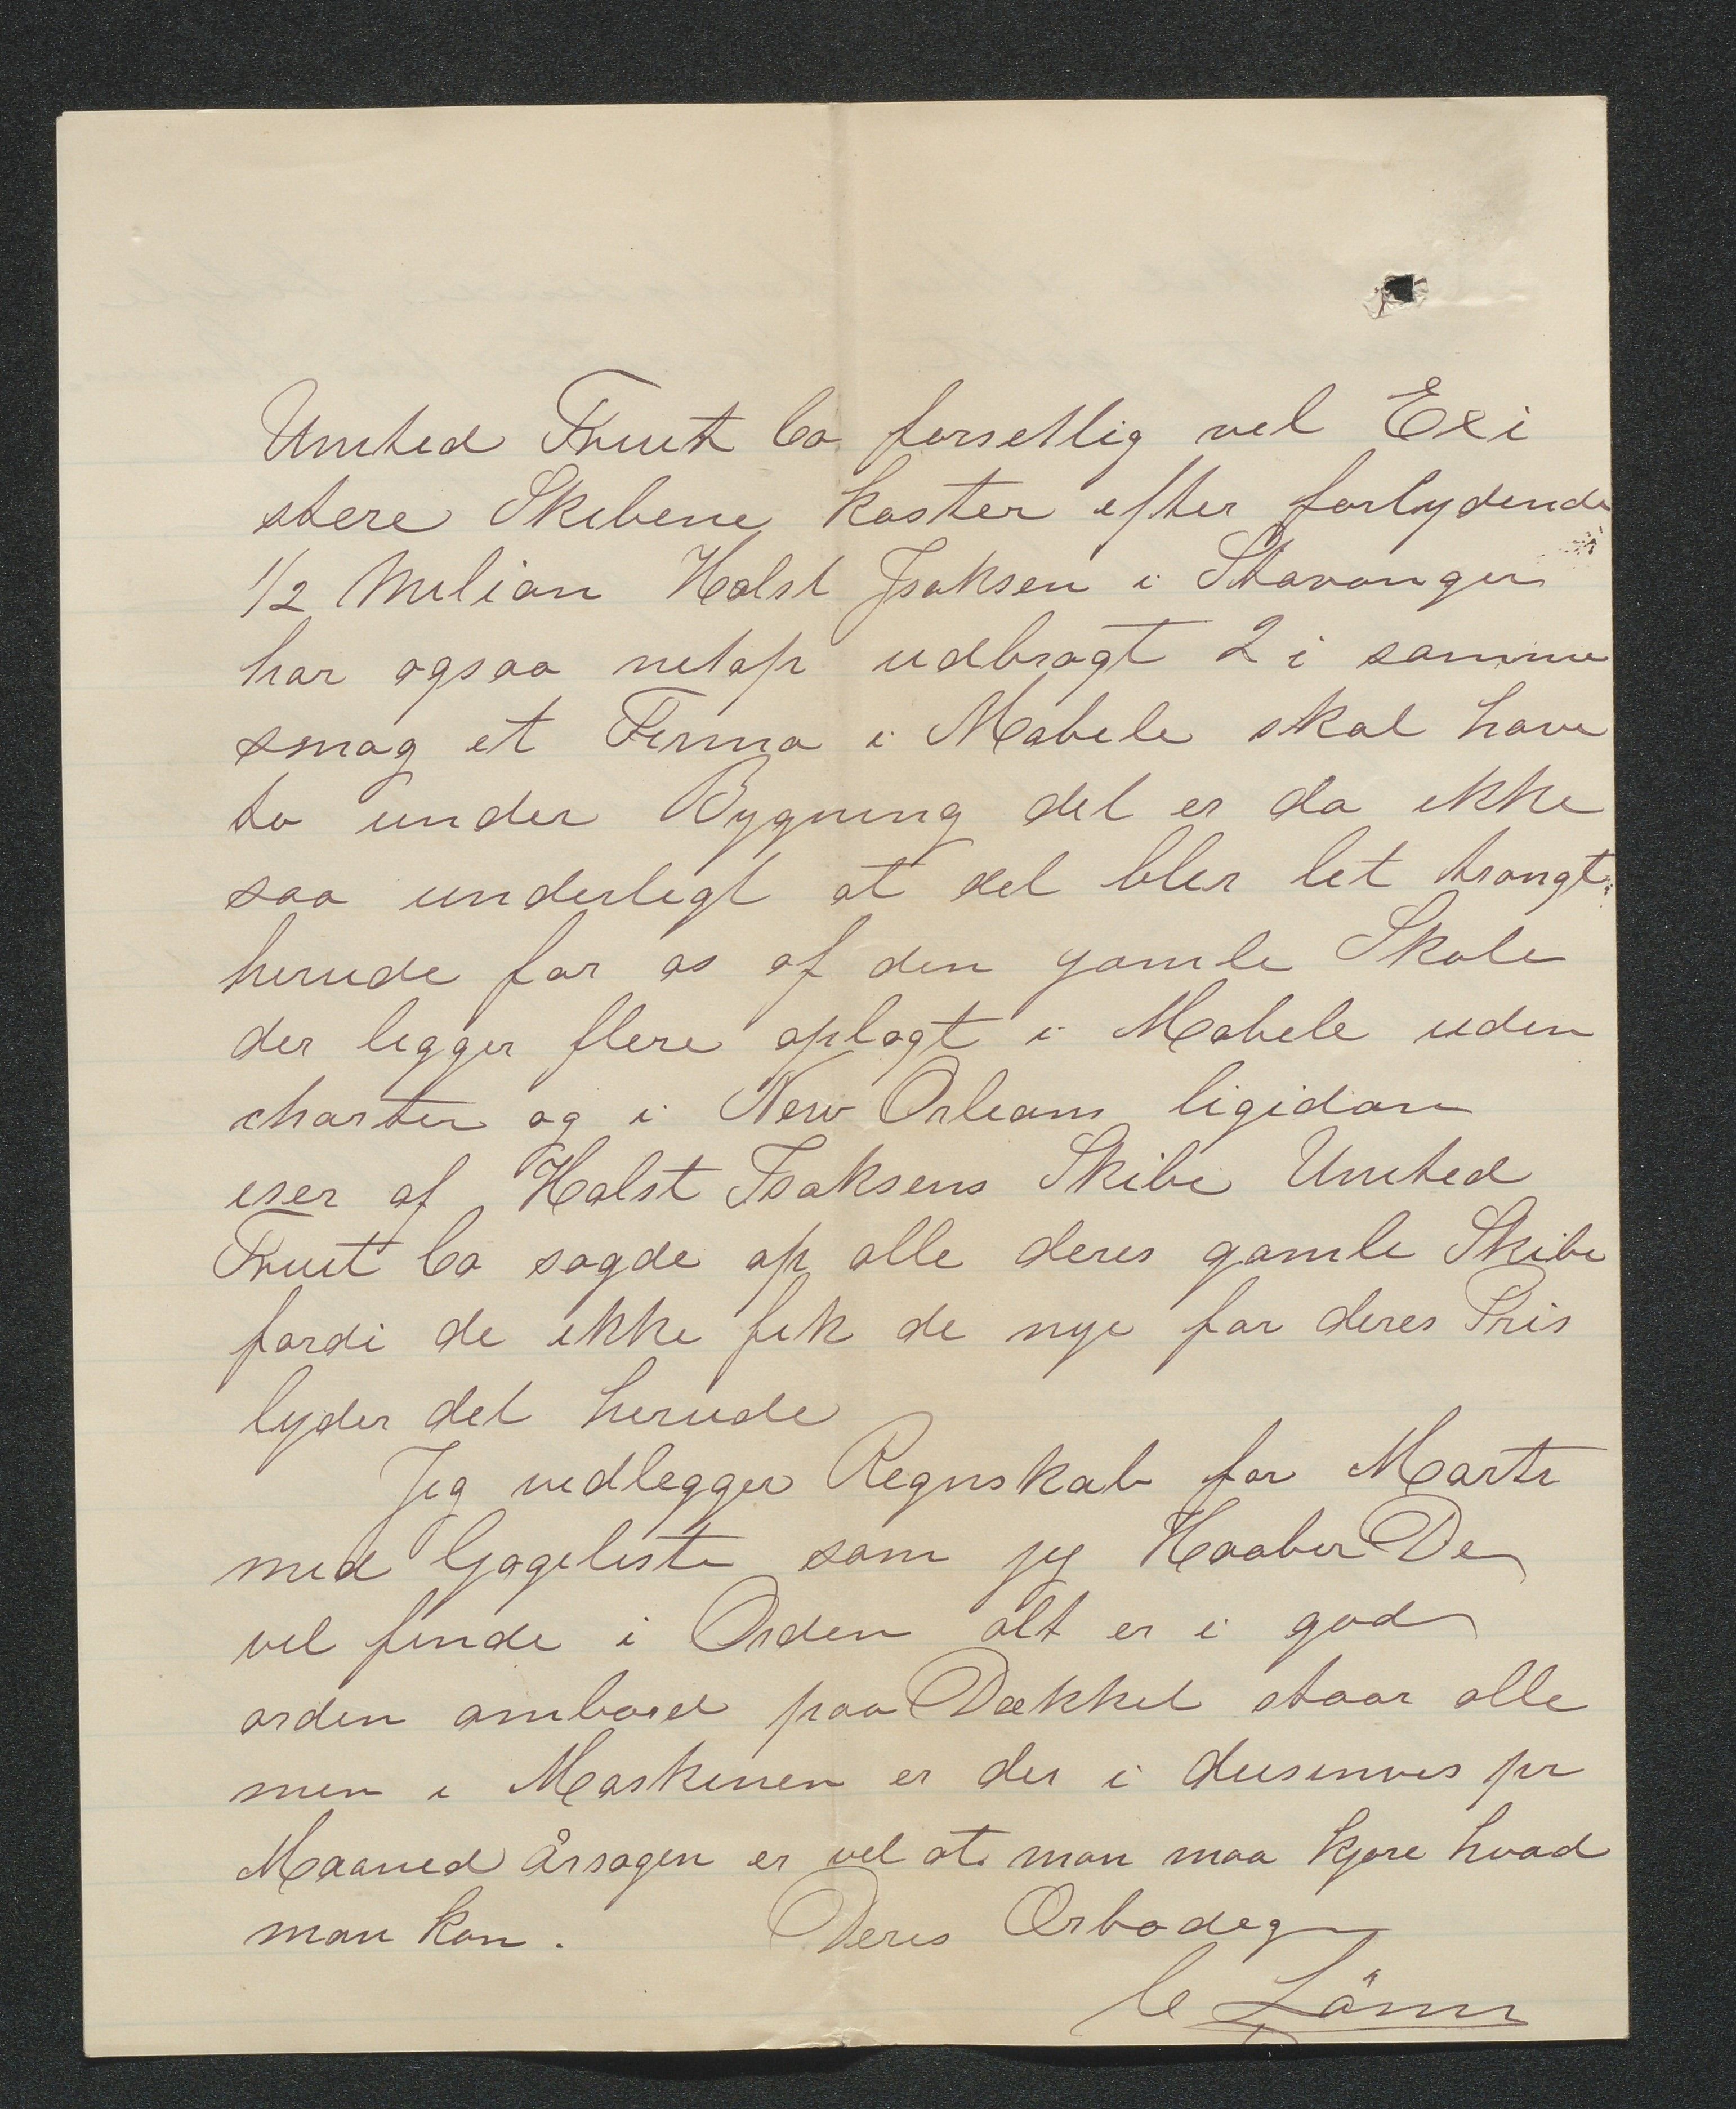 United Fruit Co forsetlig vel Exi
stere Skibene koster efter forlydende
1/2 Melion Holst Isaksen i Stavanger
har ogsaa netop udbragt 2 i samme
smag et Firma i Mobele skal have
to under Bygning det er da ikke
saa underlegt at det bler let trangt
herude for os af den gamle Skole
der legger flere oplagt i Mobele uden
charter og i New Orleans ligidan
eser af Holst Isaksens Skibe United
Fruit Co sagde op alle deres gamle Skibe
fordi de ikke fik de nye for deres Pris
lyder det herude
Jeg vedlegger Regnskab for Marts
med Gageliste som jeg Haaber De
vel finde i Orden alt er i god
orden ombord paa Dækket staar alle
men i Maskinen er der i dusinves pr
Maaned årsagen er vel at man maa kjøre hvad
man kan. Deres Ærbødeg
C Lönn